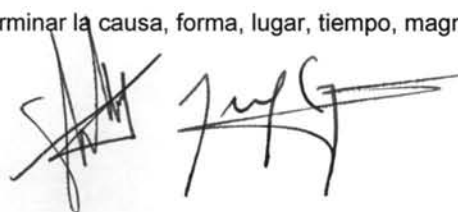 rminar la causa, forma, lugar, tiempo, magr